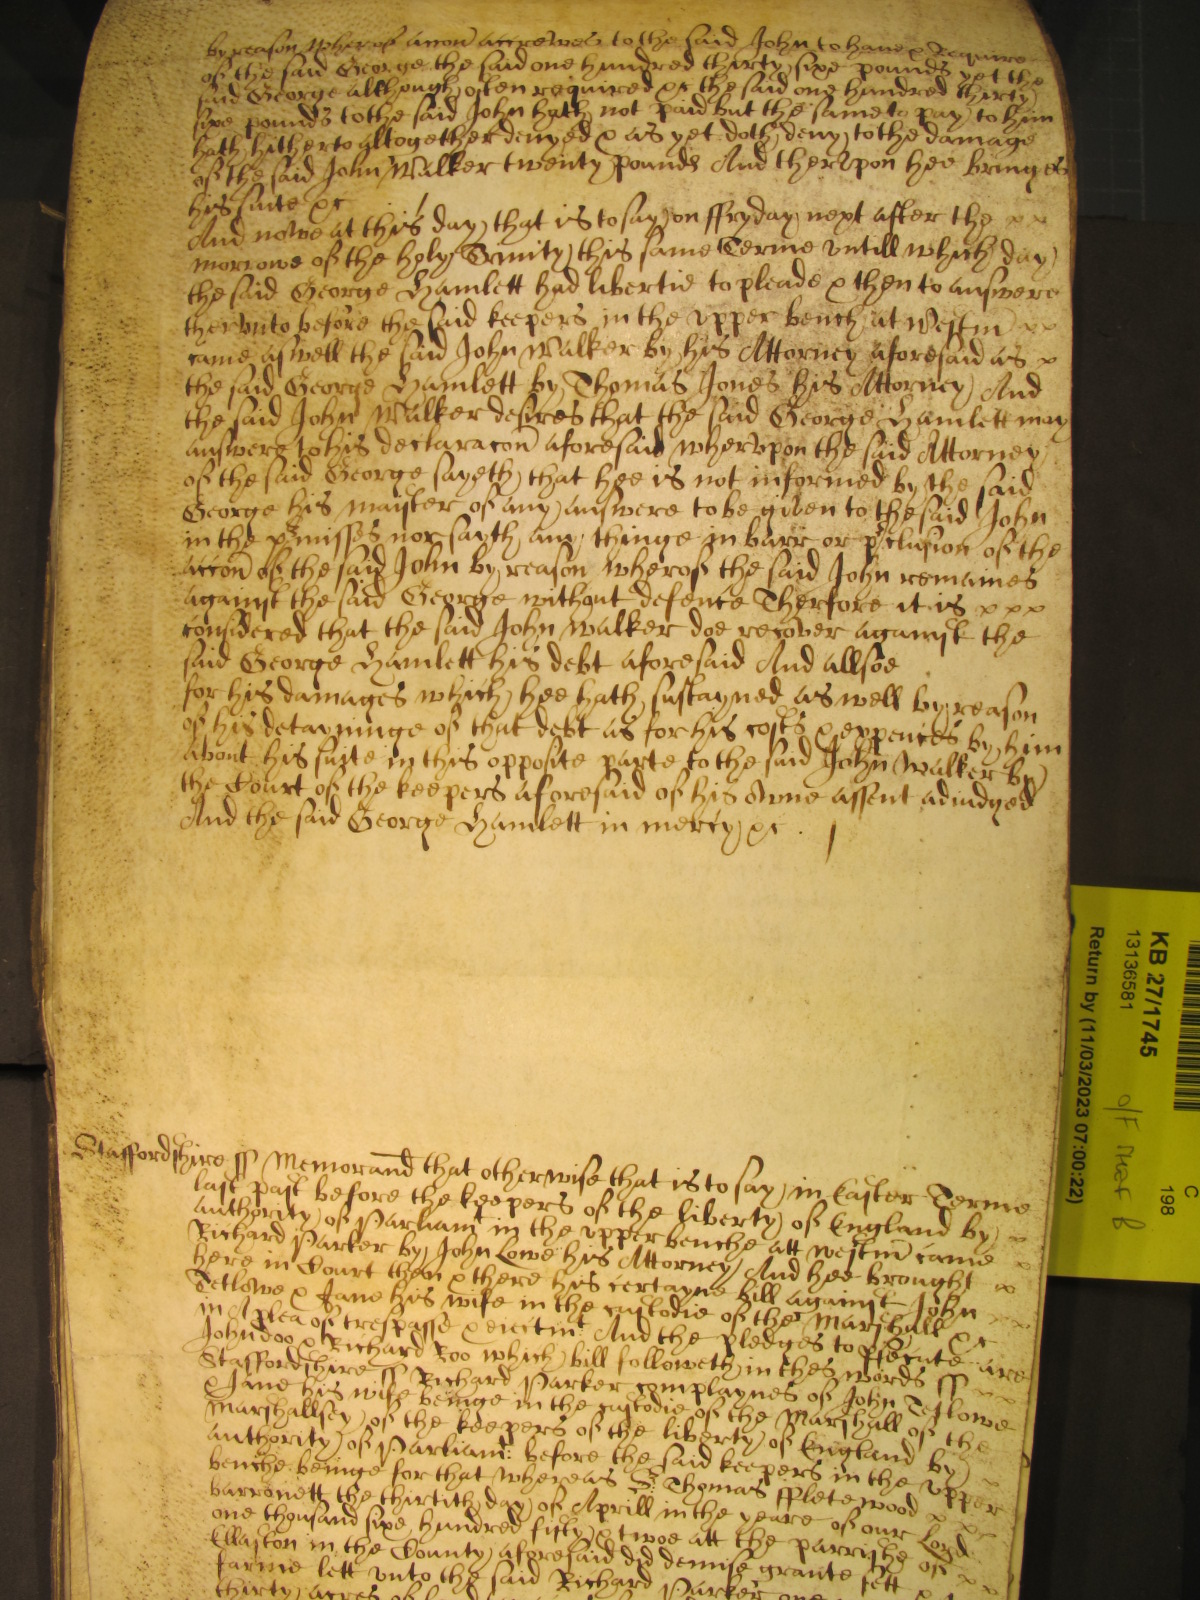 by reason wherof accon accrewes to the said John to have & require
of the said George the said one hundred thirty sixe pounds yet the
said George although often required &c the said one hundred thirty
sixe pounds to the said John hath not paid but the same to pay to him
hath hitherto altogether denyed & as yet doth deny to the damage
of the said John Walker twenty pounds And therupon hee bringes
his suite &c
And nowe at this day that is to say on ffryday next after the x x
morrowe of the holy Trinity this same Terme untill which day
the said George Hamlett had libertie to pleade & then to answere
therunto before the said keepers in the upper bench at Westm x x
came aswell the said John Walker by his Attorney aforesaid as x
the said George Hamlett by Thomas Jones his Attorney And
the said John Walker desires that the said George Hamlett may
answere to his declaracon aforesaid wherupon the said Attorney
of the said George sayeth that hee is not informed by the said
George his maister of any answere to be given to the said John
in the pmisses nor sayth any thinge in barr or pclusion of the
accon of the said John by reason wherof the said John remaines
against the said George without defence Therfore it is x x x
considered that the said John Walker doe recover against the
said George Hamlett his debt aforesaid And allsoe
for his damages which hee hath sustayned as well by reason
of his detayninge of that debt as for his costs & expences by him
about his suite in this opposite parte to the said John Walker by
the Court of the keepers aforesaid of his owne assent adiudged
And the said George Hamlett in mercy &c.
Staffordshire ss Memorand that otherwise that is to say in Easter Terme
last past before the keepers of the liberty of England by
authority of Parliamt in the upper benche att westm came x
Richard Parker by John Lowe his Attorney And hee brought x
here in Court then & there his certayne bill against John
Tetlowe & Jane his wife in the custodie of the Marshall &c
in A plea of trespasse & eiectmt And the pledges to psecute are
John doo & Richard Roo which bill followeth in thes words ss
Staffordshire ss Richard Parker complaynes of John Tetlowe
& Jane his wife beinge in the custodie of the Marshall of the
Marshallsey of the keepers of the liberty of England by
authority of Parliam: before the said keepers in the upper
benche beinge for that whereas Sr Thomas fflete wood x x x
barronett the thirtith day of Aprill in the yeare of our Lord
one thousand sixe hundred fifty & twoe att the parrishe of
Ellaston in the County aforesaid did demise grante sett x x
farme lett unto the said Richard Parker one
thirty acres of
KB 27/1745
13136581
Return by (11/03/2023 07:00:22)
C
198